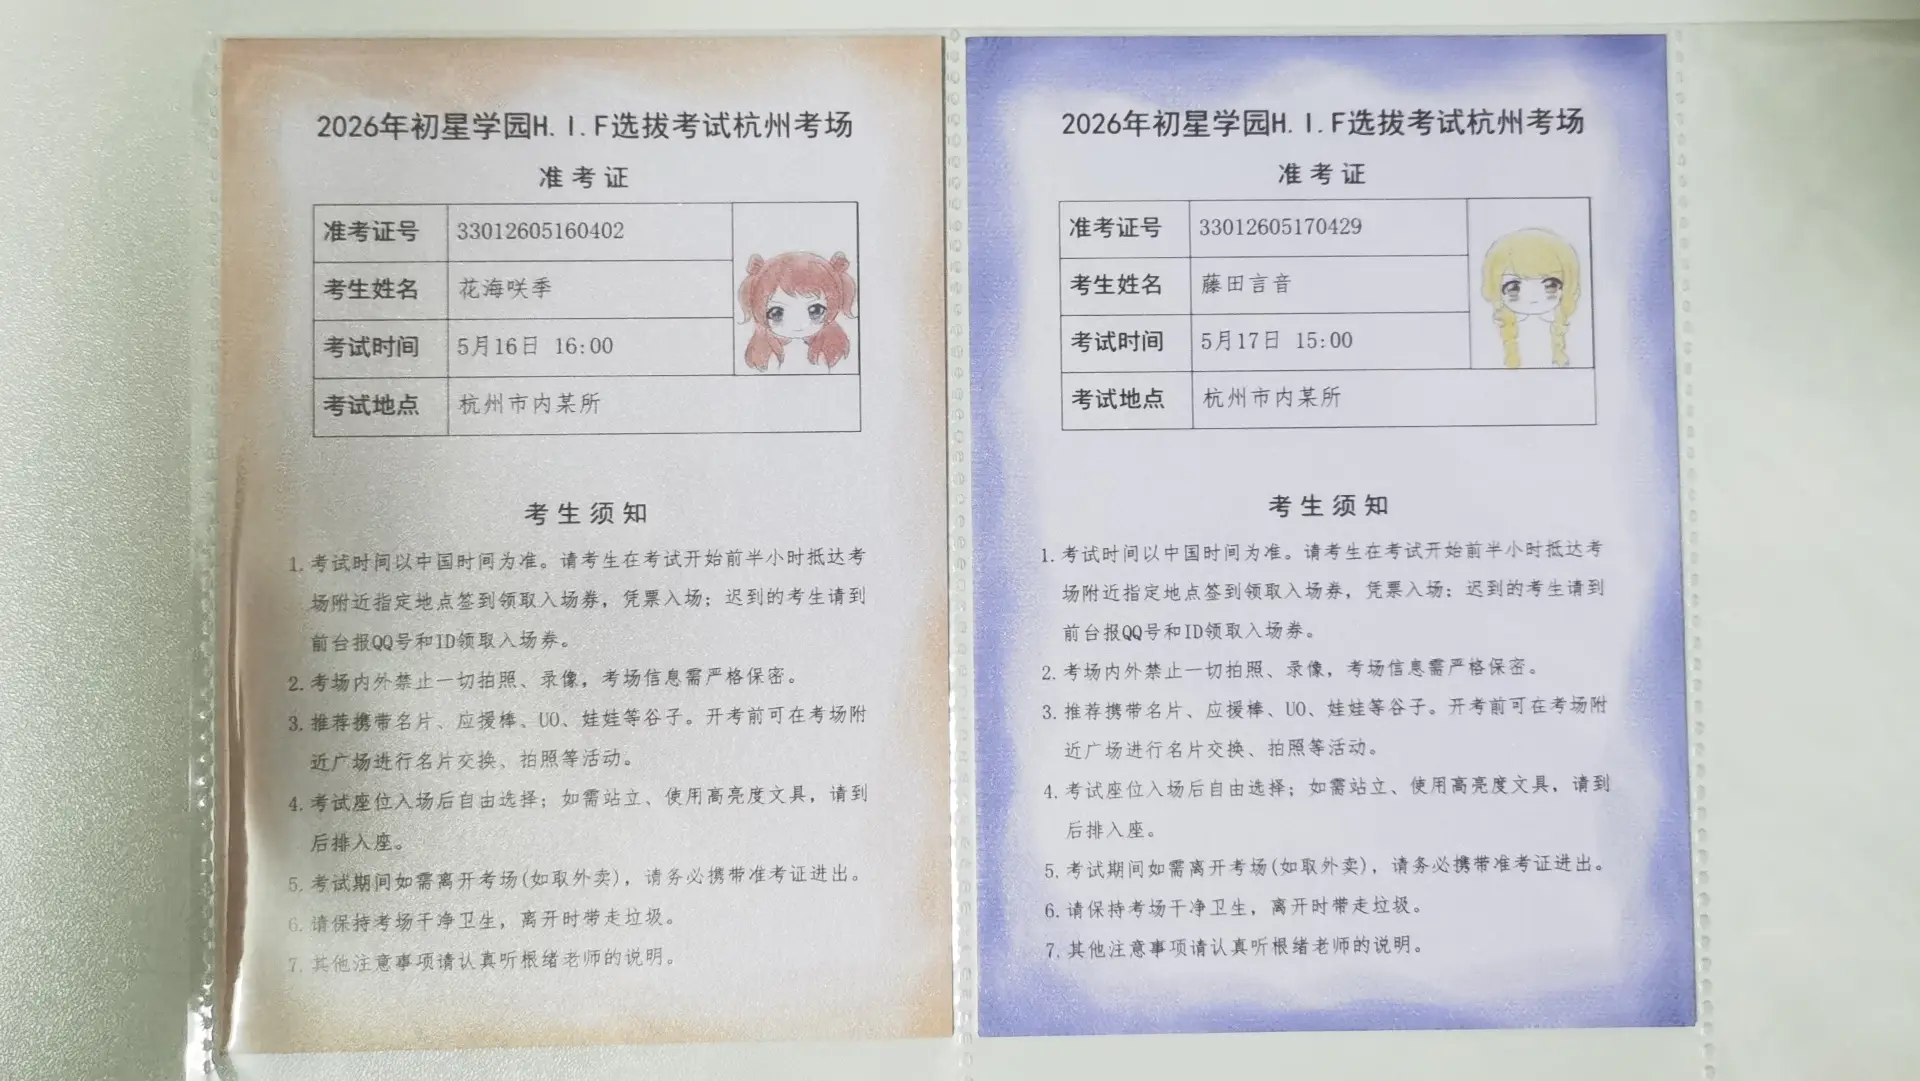 2026年初星学园H.I.F选拔考试杭州考场
准考证
准考证号 33012605160402
考生姓名 花海咲季
考试时间 5月16日 16:00
考试地点 杭州市内某所
考生须知
1. 考试时间以中国时间为准。请考生在考试开始前半小时抵达考
场附近指定地点签到领取入场券，凭票入场；迟到的考生请到
前台报QQ号和ID领取入场券。
2. 考场内外禁止一切拍照、录像，考场信息需严格保密。
3. 推荐携带名片、应援棒、UO、娃娃等谷子。开考前可在考场附
近广场进行名片交换、拍照等活动。
4. 考试座位入场后自由选择；如需站立、使用高亮度文具，请到
后排入座。
5. 考试期间如需离开考场(如取外卖)，请务必携带准考证进出。
6. 请保持考场干净卫生，离开时带走垃圾。
7. 其他注意事项请认真听根绪老师的说明。
2026年初星学园H.I.F选拔考试杭州考场
准考证
准考证号 33012605170429
考生姓名 藤田言音
考试时间 5月17日 15:00
考试地点 杭州市内某所
考生须知
1. 考试时间以中国时间为准。请考生在考试开始前半小时抵达考
场附近指定地点签到领取入场券，凭票入场；迟到的考生请到
前台报QQ号和ID领取入场券。
2. 考场内外禁止一切拍照、录像，考场信息需严格保密。
3. 推荐携带名片、应援棒、UO、娃娃等谷子。开考前可在考场附
近广场进行名片交换、拍照等活动。
4. 考试座位入场后自由选择；如需站立、使用高亮度文具，请到
后排入座。
5. 考试期间如需离开考场(如取外卖)，请务必携带准考证进出。
6. 请保持考场干净卫生，离开时带走垃圾。
7. 其他注意事项请认真听根绪老师的说明。